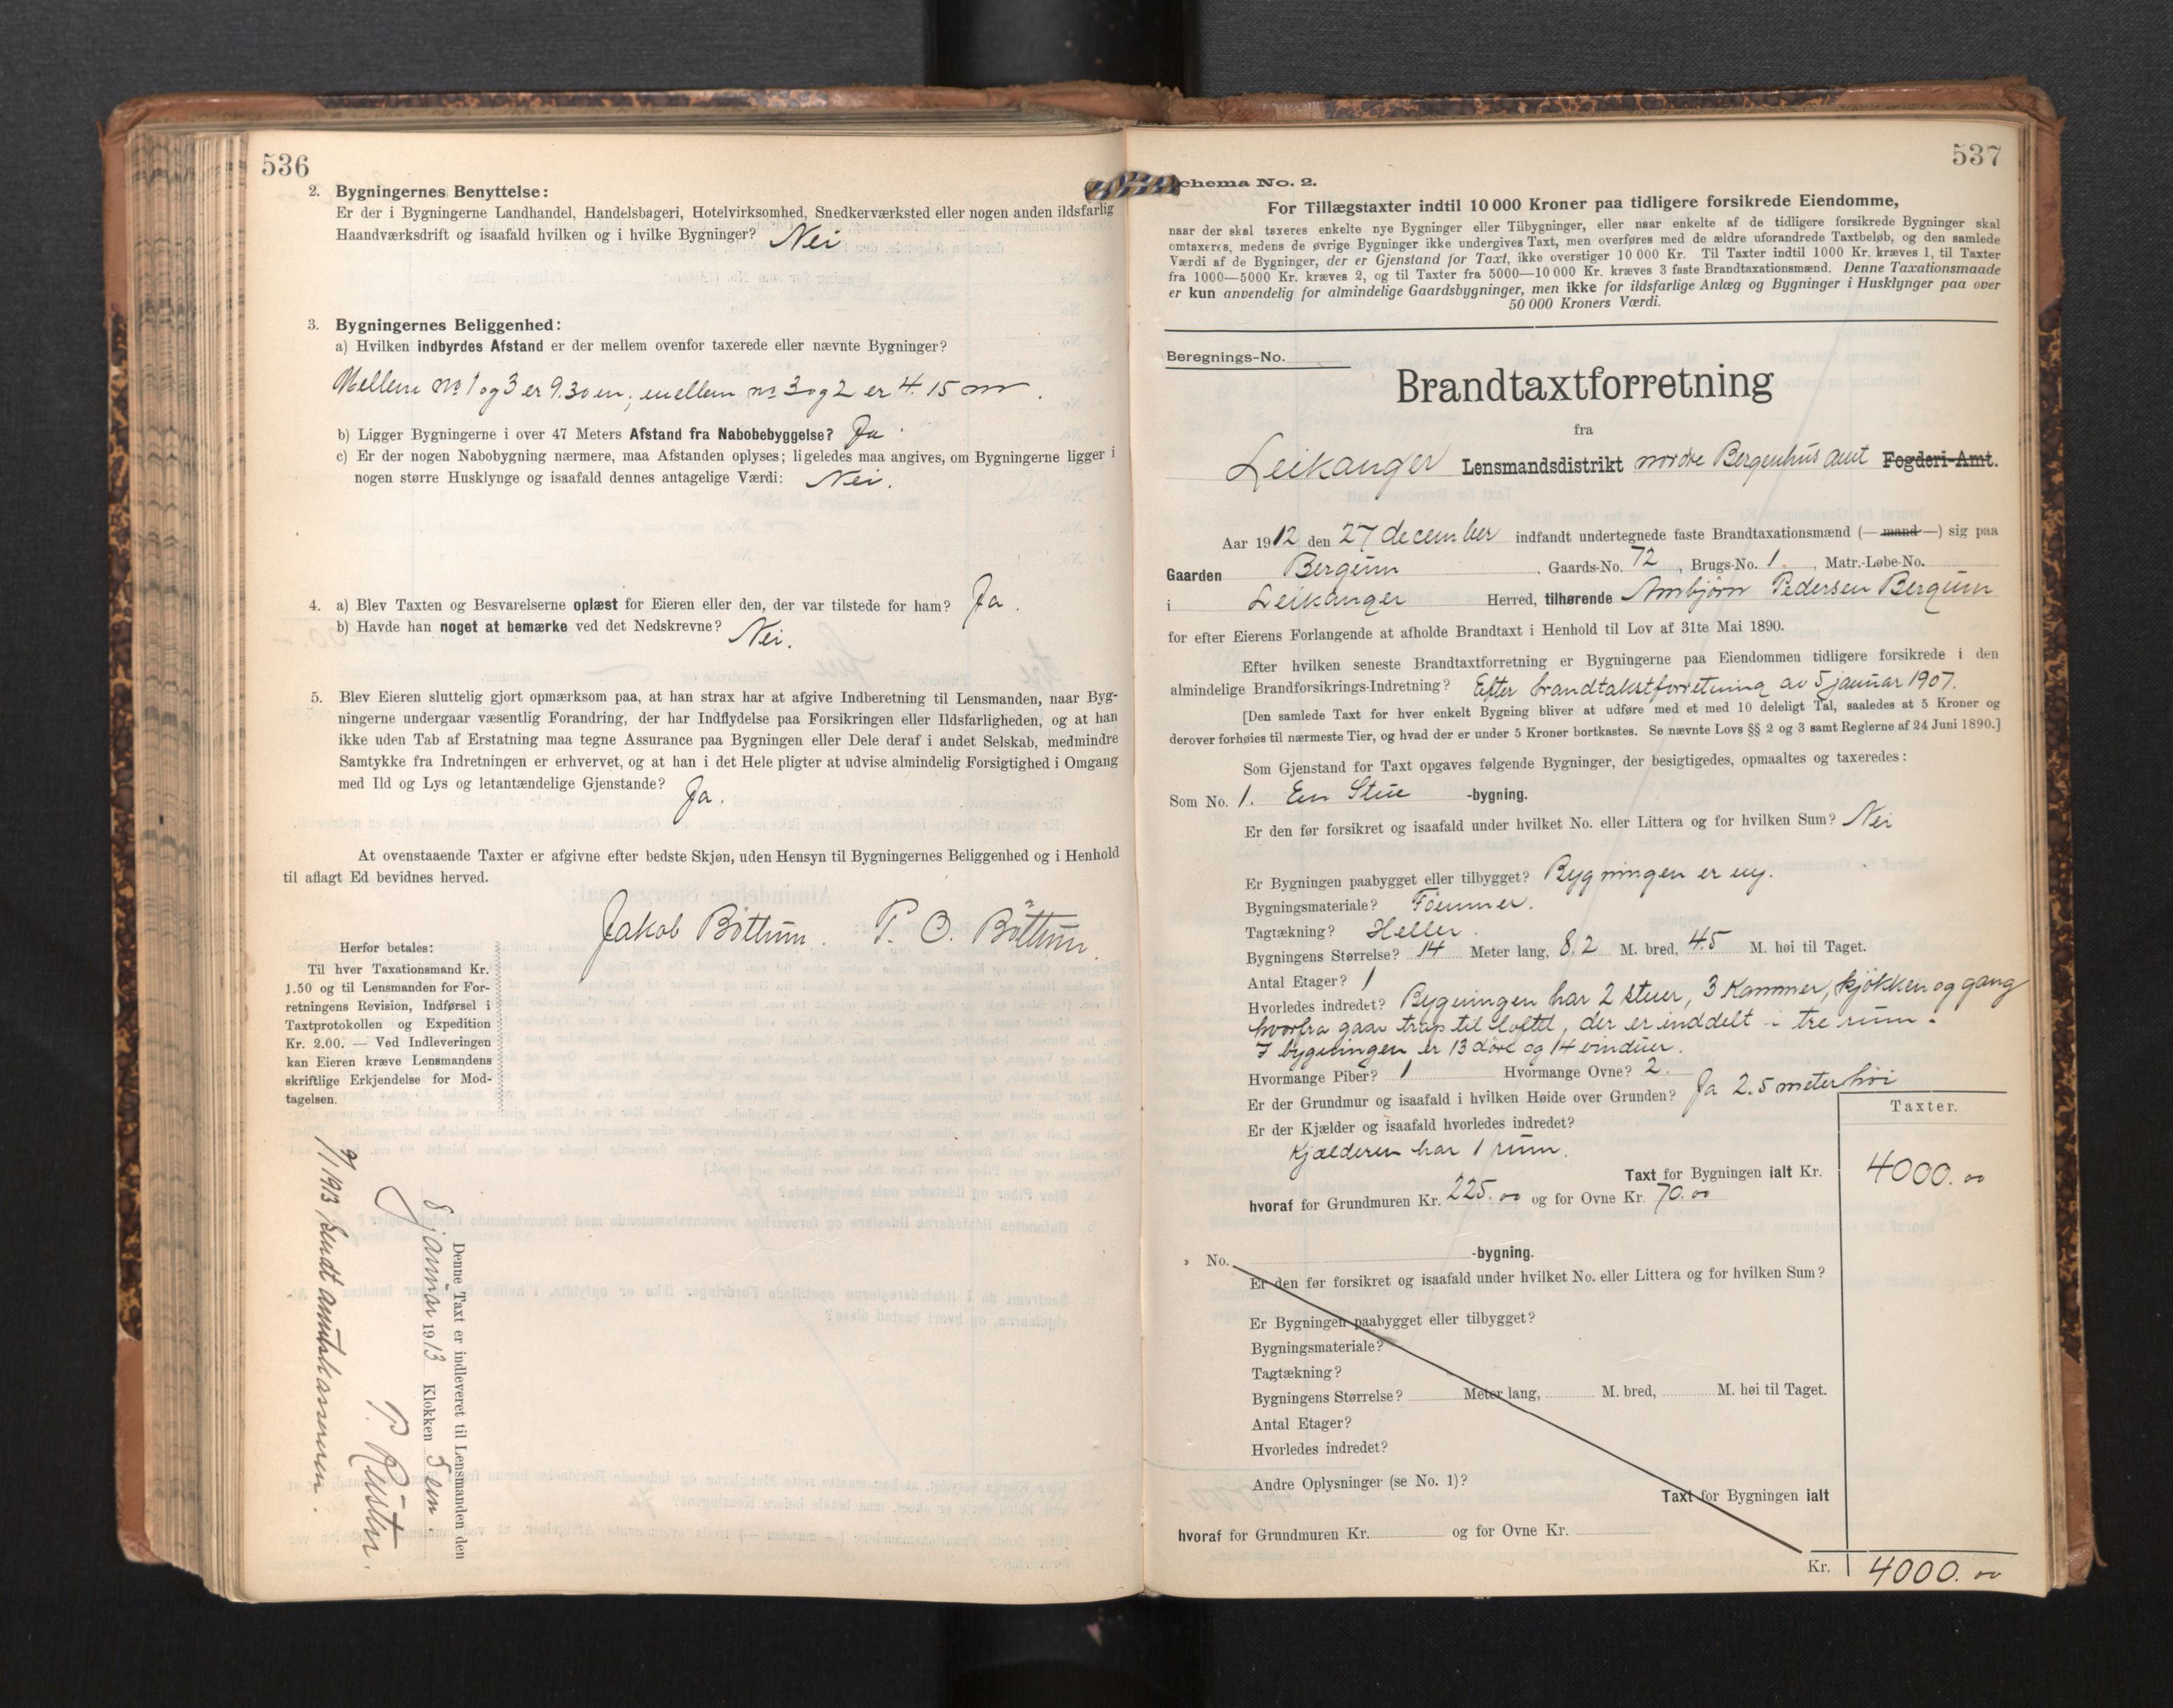 536
2. Bygningernes Benyttelse:
Er der i Bygningerne Landhandel, Handelsbageri, Hotelvirksomhed, Snedkerværksted eller nogen anden ildsfarlig
Haandværksdrift og isaafald hvilken og i hvilke Bygninger? Nei
3. Bygningernes Beliggenhed:
a) Hvilken indbyrdes Afstand er der mellem ovenfor taxerede eller nævnte Bygninger?
Mellem No 1 og 3 er 9.30 m, mellem no 3 og 2 er 4.15 m.
b) Ligger Bygningerne i over 47 Meters Afstand fra Nabobebyggelse? Ja.
c) Er der nogen Nabobygning nærmere, maa Afstanden oplyses; ligeledes maa angives, om Bygningerne ligger i
nogen større Husklynge og isaafald dennes antagelige Værdi: Nei.
4. a) Blev Taxten og Besvarelserne oplæst for Eieren eller den, der var tilstede for ham? Ja.
b) Havde han noget at bemærke ved det Nedskrevne? Nei.
5. Blev Eieren sluttelig gjort opmærksom paa, at han strax har at afgive Indberetning til Lensmanden, naar Byg-
ningerne undergaar væsentlig Forandring, der har Indflydelse paa Forsikringen eller Ildsfarligheden, og at han
ikke uden Tab af Erstatning maa tegne Assurance paa Bygningen eller Dele deraf i andet Selskab, medmindre
Samtykke fra Indretningen er erhvervet, og at han i det Hele pligter at udvise almindelig Forsigtighed i Omgang
med Ild og Lys og letantændelige Gjenstande? Ja.
At ovenstaaende Taxter er afgivne efter bedste Skjøn, uden Hensyn til Bygningernes Beliggenhed og i Henhold
til aflagt Ed bevidnes herved.
Jakob Böttum. P. O. Böttum.
Herfor betales:
Til hver Taxationsmand Kr.
1.50 og til Lensmanden for For-
retningens Revision, Indførsel i
Taxtprotokollen og Expedition
Kr. 2.00. — Ved Indleveringen
kan Eieren kræve Lensmandens
skriftlige Erkjendelse for Mod-
tagelsen.
Denne Taxt er indleveret til Lensmanden den
8 januar 1913 Klokken 5 em.
P. Rüsten.
9/1 1913 sendt amtskassereren.
537
Schema No. 2.
For Tillægstaxter indtil 10 000 Kroner paa tidligere forsikrede Eiendomme,
naar der skal taxeres enkelte nye Bygninger eller Tilbygninger, eller naar enkelte af de tidligere forsikrede Bygninger skal
omtaxeres, medens de øvrige Bygninger ikke undergives Taxt, men overføres med de ældre uforandrede Taxtbeløb, og den samlede
Værdi af de Bygninger, der er Gjenstand for Taxt, ikke overstiger 10 000 Kr. Til Taxter indtil 1000 Kr. kræves 1, til Taxter
fra 1000—5000 Kr. kræves 2, og til Taxter fra 5000—10 000 Kr. kræves 3 faste Brandtaxationsmænd. Denne Taxationsmaade
er kun anvendelig for almindelige Gaardsbygninger, men ikke for ildsfarlige Anlæg og Bygninger i Husklynger paa over
50 000 Kroners Værdi.
Beregnings-No.
Brandtaxtforretning
fra
Leikanger Lensmandsdistrikt nordre Bergenhus amt Fogderi-Amt.
Aar 1912 den 27 december indfandt undertegnede faste Brandtaxationsmænd (— mand —) sig paa
Gaarden Bergum, Gaards-No. 72, Brugs-No. 1, Matr.-Løbe-No.
i Leikanger Herred, tilhørende Ambjörn Pedersen Bergum
for efter Eierens Forlangende at afholde Brandtaxt i Henhold til Lov af 31te Mai 1890.
Efter hvilken seneste Brandtaxtforretning er Bygningerne paa Eiendommen tidligere forsikrede i den
almindelige Brandforsikrings-Indretning? Efter brandtakstforretning av 5 januar 1907.
[Den samlede Taxt for hver enkelt Bygning bliver at udføre med et med 10 deleligt Tal, saaledes at 5 Kroner og
derover forhøies til nærmeste Tier, og hvad der er under 5 Kroner bortkastes. Se nævnte Lovs §§ 2 og 3 samt Reglerne af 24 Juni 1890.]
Som Gjenstand for Taxt opgaves følgende Bygninger, der besigtigedes, opmaaltes og taxeredes:
Som No. 1. En Stue -bygning.
Er den før forsikret og isaafald under hvilket No. eller Littera og for hvilken Sum? Nei
Er Bygningen paabygget eller tilbygget? Bygningen er ny.
Bygningsmateriale? Tömmer.
Tagtækning? Heller.
Bygningens Størrelse? 14 Meter lang, 8.2 M. bred, 4.5 M. høi til Taget.
Antal Etager? 1
Hvorledes indredet? Bygningen har 2 stuer, 3 Kammer, kjøkken og gang
hvorfra gaar trap til loftet, der er inddelt i tre rum.
I bygningen er 13 döre og 14 vinduer.
Hvormange Piber? 1 Hvormange Ovne? 2.
Er der Grundmur og isaafald i hvilken Høide over Grunden? Ja 2.5 meter höi
Er der Kjælder og isaafald hvorledes indredet?
Kjælderen har 1 rum.
Taxter.
Taxt for Bygningen ialt Kr. 4000.00
hvoraf for Grundmuren Kr. 225.00 og for Ovne Kr. 70.00
" No. -bygning.
Er den før forsikret og isaafald under hvilket No. eller Littera og for hvilken Sum?
Er Bygningen paabygget eller tilbygget?
Bygningsmateriale?
Tagtækning?
Bygningens Størrelse? Meter lang, M. bred, M. høi til Taget.
Antal Etager?
Hvorledes indredet?
Andre Oplysninger (se No. 1)?
Taxt for Bygningen ialt
hvoraf for Grundmuren Kr. og for Ovne Kr.
Kr. 4000.00